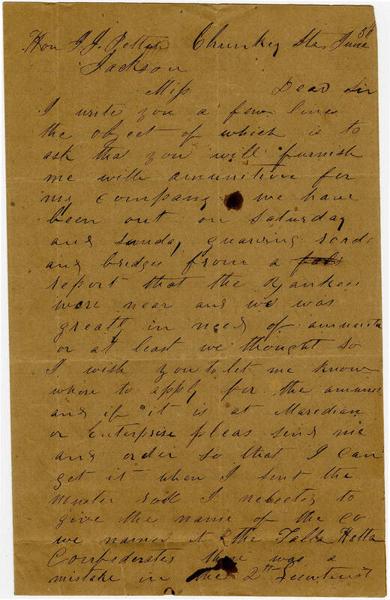 Hon J. J. Pettus Chunkey Sta June 30
Jackson
Miss Dear Sir
I write you a few lines
the object of which is to
ask that you will furnish
me with amunition for
my Company we have
been out on Saturday
and Sunday guarding roads
and bridges from a
report that the Yankees
ware near and we was
greatly in need of amunition
or at least we thought so
I wish you to let me know
whare to apply for the amunition
and if it is at Maredian
or Enterprise pleas send me
and order so that I can
get it when I sent the
muster roll I neglected to
give the name of the Co
we named it the Talla Hatta
Confederates thare was a
mistake in the 2nd Lieutenant